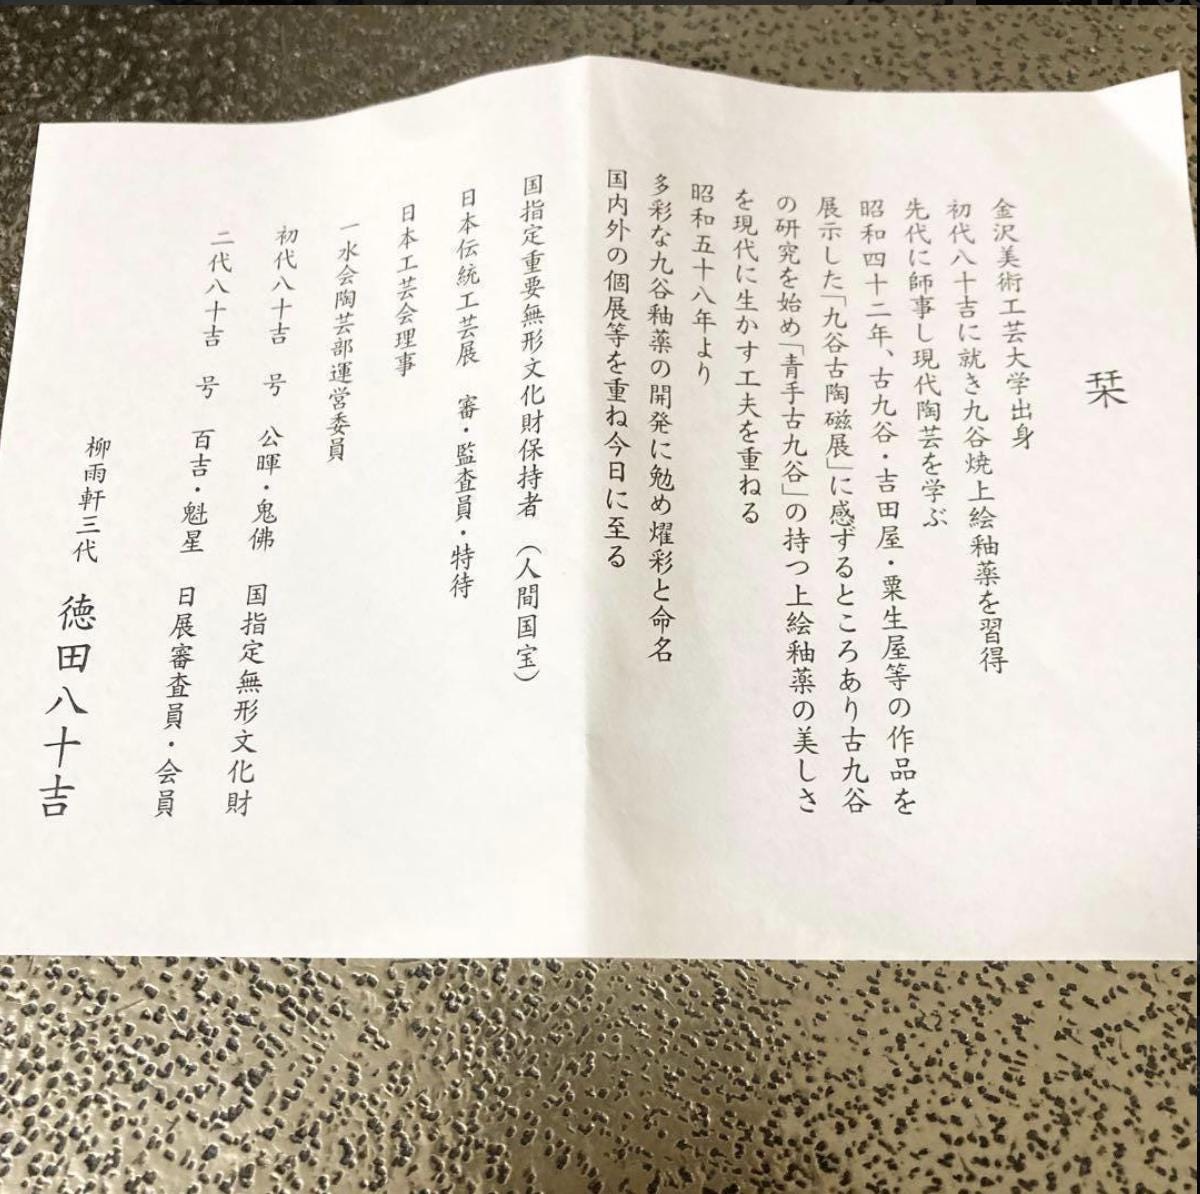 栞
金沢美術工芸大学出身
初代八十吉に就き九谷焼上絵釉薬を習得
先代に師事し現代陶芸を学ぶ
昭和四十二年、古九谷・吉田屋・粟生屋等の作品を
展示した「九谷古陶磁展」に感ずるところあり古九谷
の研究を始め「青手古九谷」の持つ上絵釉薬の美しさ
を現代に生かす工夫を重ねる
昭和五十八年より
多彩な九谷釉薬の開発に勉め燿彩と命名
国内外の個展等を重ね今日に至る
国指定重要無形文化財保持者（人間国宝）
日本伝統工芸展　審・監査員・特待
日本工芸会理事
一水会陶芸部運営委員
初代八十吉　号　公暉・鬼佛　国指定無形文化財
二代八十吉　号　百吉・魁星　日展審査員・会員
柳雨軒三代　徳田八十吉